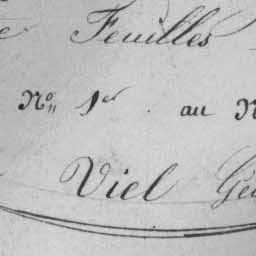 Feuilles
No 1er. au N
Viel